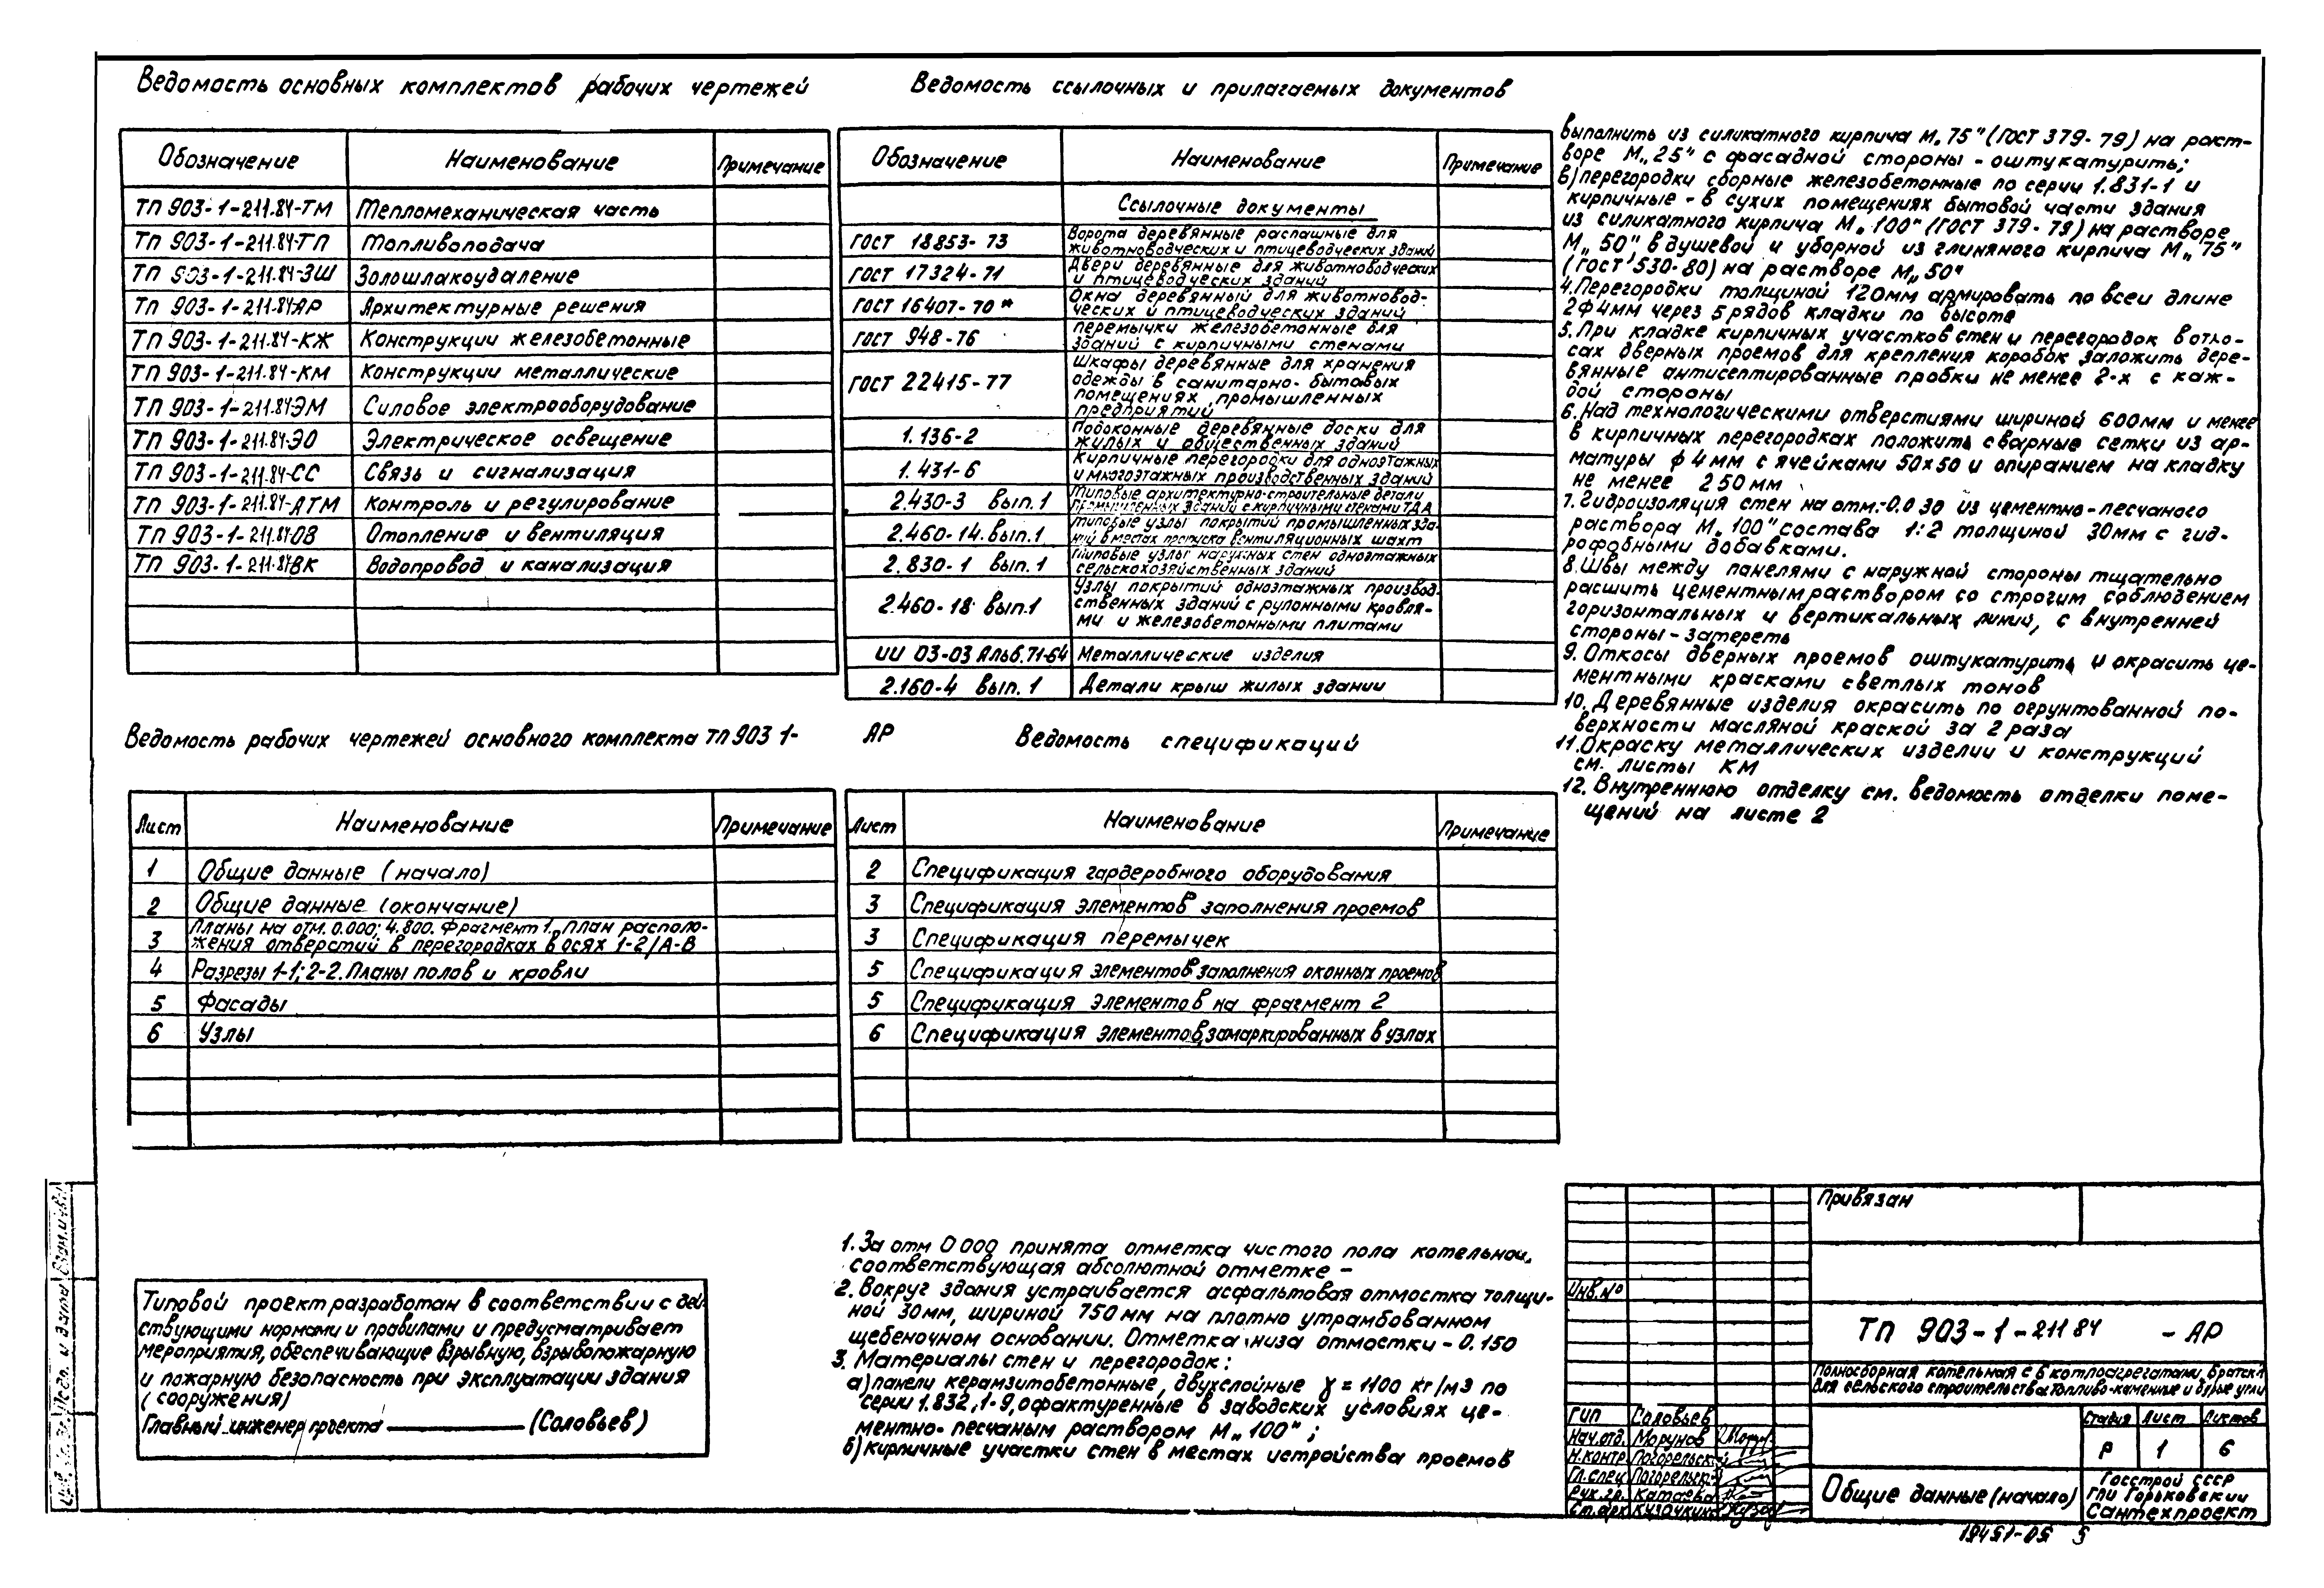 Ведомость основных комплектов рабочих чертежей
Обозначение Наименование Примечание
ТП 903-1-211.84-ТМ Тепломеханическая часть
ТП 903-1-211.84-ТП Топливоподача
ТП 903-1-211.84-ЗШ Золошлакоудаление
ТП 903-1-211.84АР Архитектурные решения
ТП 903-1-211.84-КЖ Конструкции железобетонные
ТП 903-1-211.84-КМ Конструкции металлические
ТП 903-1-211.84ЭМ Силовое электрооборудование
ТП 903-1-211.84-ЭО Электрическое освещение
ТП 903-1-211.84-СС Связь и сигнализация
ТП 903-1-211.84-АТМ Контроль и регулирование
ТП 903-1-211.84ОВ Отопление и вентиляция
ТП 903-1-211.84ВК Водопровод и канализация
Ведомость ссылочных и прилагаемых документов
Обозначение Наименование Примечание
Ссылочные документы
ГОСТ 18853-73 Ворота деревянные распашные для
животноводческих и птицеводческих зданий
ГОСТ 17324-71 Двери деревянные для животноводческих
и птицеводческих зданий
ГОСТ 16407-70* Окна деревянный для животновод-
ческих и птицеводческих зданий
ГОСТ 948-76 перемычки железобетонные для
зданий с кирпичными стенами
ГОСТ 22415-77 Шкафы деревянные для хранения
одежды в санитарно-бытовых
помещениях промышленных
предприятий
1.136-2 Подоконные деревянные доски для
жилых и общественных зданий
1.431-6 Кирпичные перегородки для одноэтажных
и многоэтажных производственных зданий
2.430-3 вып.1 Типовые архитектурно-строительные детали
промышленных зданий с кирпичными стенами ТДА
2.460-14.вып.1 Типовые узлы покрытий промышленных зда-
ний в местах пропуска вентиляционных шахт
2.830-1 вып.1 Типовые узлы наружных стен одноэтажных
сельскохозяйственных зданий
2.460-18 вып.1 Узлы покрытий одноэтажных производ-
ственных зданий с рулонными кровля-
ми и железобетонными плитами
ИИ 03-03 Альб.71-64 Металлические изделия
2.160-4 вып. 1 Детали крыш жилых здании
Ведомость рабочих чертежей основного комплекта ТП 903 1- АР
Лист Наименование Примечание
1 Общие данные (начало)
2 Общие данные (окончание)
3 Планы на отм. 0.000; 4.800. Фрагмент 1. План располо-
жения отверстий в перегородках в осях 1-2/А-В
4 Разрезы 1-1; 2-2. Планы полов и кровли
5 Фасады
6 Узлы
Ведомость спецификаций
Лист Наименование Примечание
2 Спецификация гардеробного оборудования
3 Спецификация элементов заполнения проемов
3 Спецификация перемычек
5 Спецификация элементов заполнения оконных проемов
5 Спецификация элементов на фрагмент 2
6 Спецификация элементов, замаркированных в узлах
Типовой проект разработан в соответствии с дей-
ствующими нормами и правилами и предусматривает
мероприятия, обеспечивающие взрывную, взрывопожарную
и пожарную безопасность при эксплуатации здания
(сооружения)
Главный инженер проекта (Соловьев)
1. За отм 0 000 принята отметка чистого пола котельной,
соответствующая абсолютной отметке -
2. Вокруг здания устраивается асфальтовая отмостка толщи-
ной 30мм, шириной 750мм на плотно утрамбованном
щебеночном основании. Отметка низа отмостки - 0.150
3. Материалы стен и перегородок:
а) панели керамзитобетонные, двухслойные γ = 1100 кг/м3 по
серии 1.832,1-9, офактуренные в заводских условиях це-
ментно-песчаным раствором М„100";
б) кирпичные участки стен в местах устройства проемов
выполнить из силикатного кирпича М„75" (ГОСТ 379-79) на раст-
воре М„25" с фасадной стороны - оштукатурить;
в) перегородки сборные железобетонные по серии 1.831-1 и
кирпичные - в сухих помещениях бытовой части здания
из силикатного кирпича М„100" (ГОСТ 379-79) на растворе
М„50" в душевой и уборной из глиняного кирпича М„75"
(ГОСТ 530-80) на растворе М„50"
4. Перегородки толщиной 120мм армировать по всей длине
2ф4мм через 5 рядов кладки по высоте
5. При кладке кирпичных участков стен и перегородок в отко-
сах дверных проемов для крепления коробок заложить дере-
вянные антисептированные пробки не менее 2-х с каж-
дой стороны
6. Над технологическими отверстиями шириной 600мм и менее
в кирпичных перегородках положить сварные сетки из ар-
матуры ф 4мм с ячейками 50х50 и опиранием на кладку
не менее 250мм
7. Гидроизоляция стен на отм.-0.030 из цементно-песчаного
раствора М„100" состава 1:2 толщиной 30мм с гид-
рофобными добавками.
8. Швы между панелями с наружной стороны тщательно
расшить цементным раствором со строгим соблюдением
горизонтальных и вертикальных линий, с внутренней
стороны - затереть
9. Откосы дверных проемов оштукатурить и окрасить це-
ментными красками светлых тонов
10. Деревянные изделия окрасить по огрунтованной по-
верхности масляной краской за 2 раза
11. Окраску металлических изделии и конструкций
см. листы КМ
12. Внутреннюю отделку см. ведомость отделки поме-
щений на листе 2
Привязан
Инв.№
ТП 903-1-211 84 - АР
Полносборная котельная с 6 котлоагрегатами Братск-1
для сельского строительства. Топливо-каменные и бурые угли
ГИП Соловьев
Нач.отд. Морунов
Н.контр. Погорельский
Гл.спец. Погорельский
Рук.гр. Катаева
Ст.арх. Кузочкина
Стадия Лист Листов
Р 1 6
Общие данные (начало)
Госстрой СССР
ГПИ Горьковский
Сантехпроект
19451-05 5